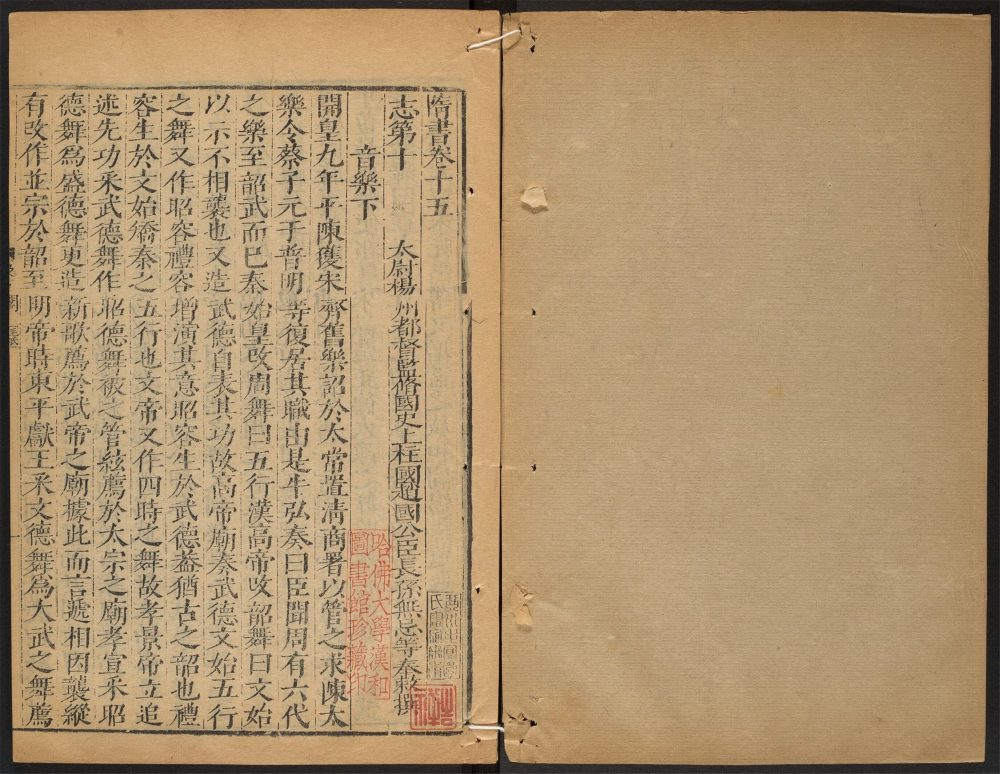 隋書卷十五
志第十
太尉楊州都督監脩國史上柱國趙國公臣長孫無忌等奉敕撰
音樂下
開皇九年平陳獲宋齊舊樂詔於太常置清商署以管之求陳太
樂令蔡子元于普明等復居其職由是牛弘奏曰臣聞周有六代
之樂至韶武而已秦始皇改周舞曰五行漢高帝改韶舞曰文始
以示不相襲也又造武德自表其功故高帝廟奏武德文始五行
之舞又作昭容禮容增演其意昭容生於武德葢猶古之韶也禮
容生於文始矯秦之五行也文帝又作四時之舞故孝景帝立追
述先功采武德舞作昭德舞被之管絃薦於太宗之廟孝宣采昭
德舞爲盛德舞更造新歌薦於武帝之廟據此而言遞相因襲縱
有改作並宗於韶至明帝時東平獻王采文德舞爲大武之舞薦
哈佛大學漢和
圖書館珍藏印